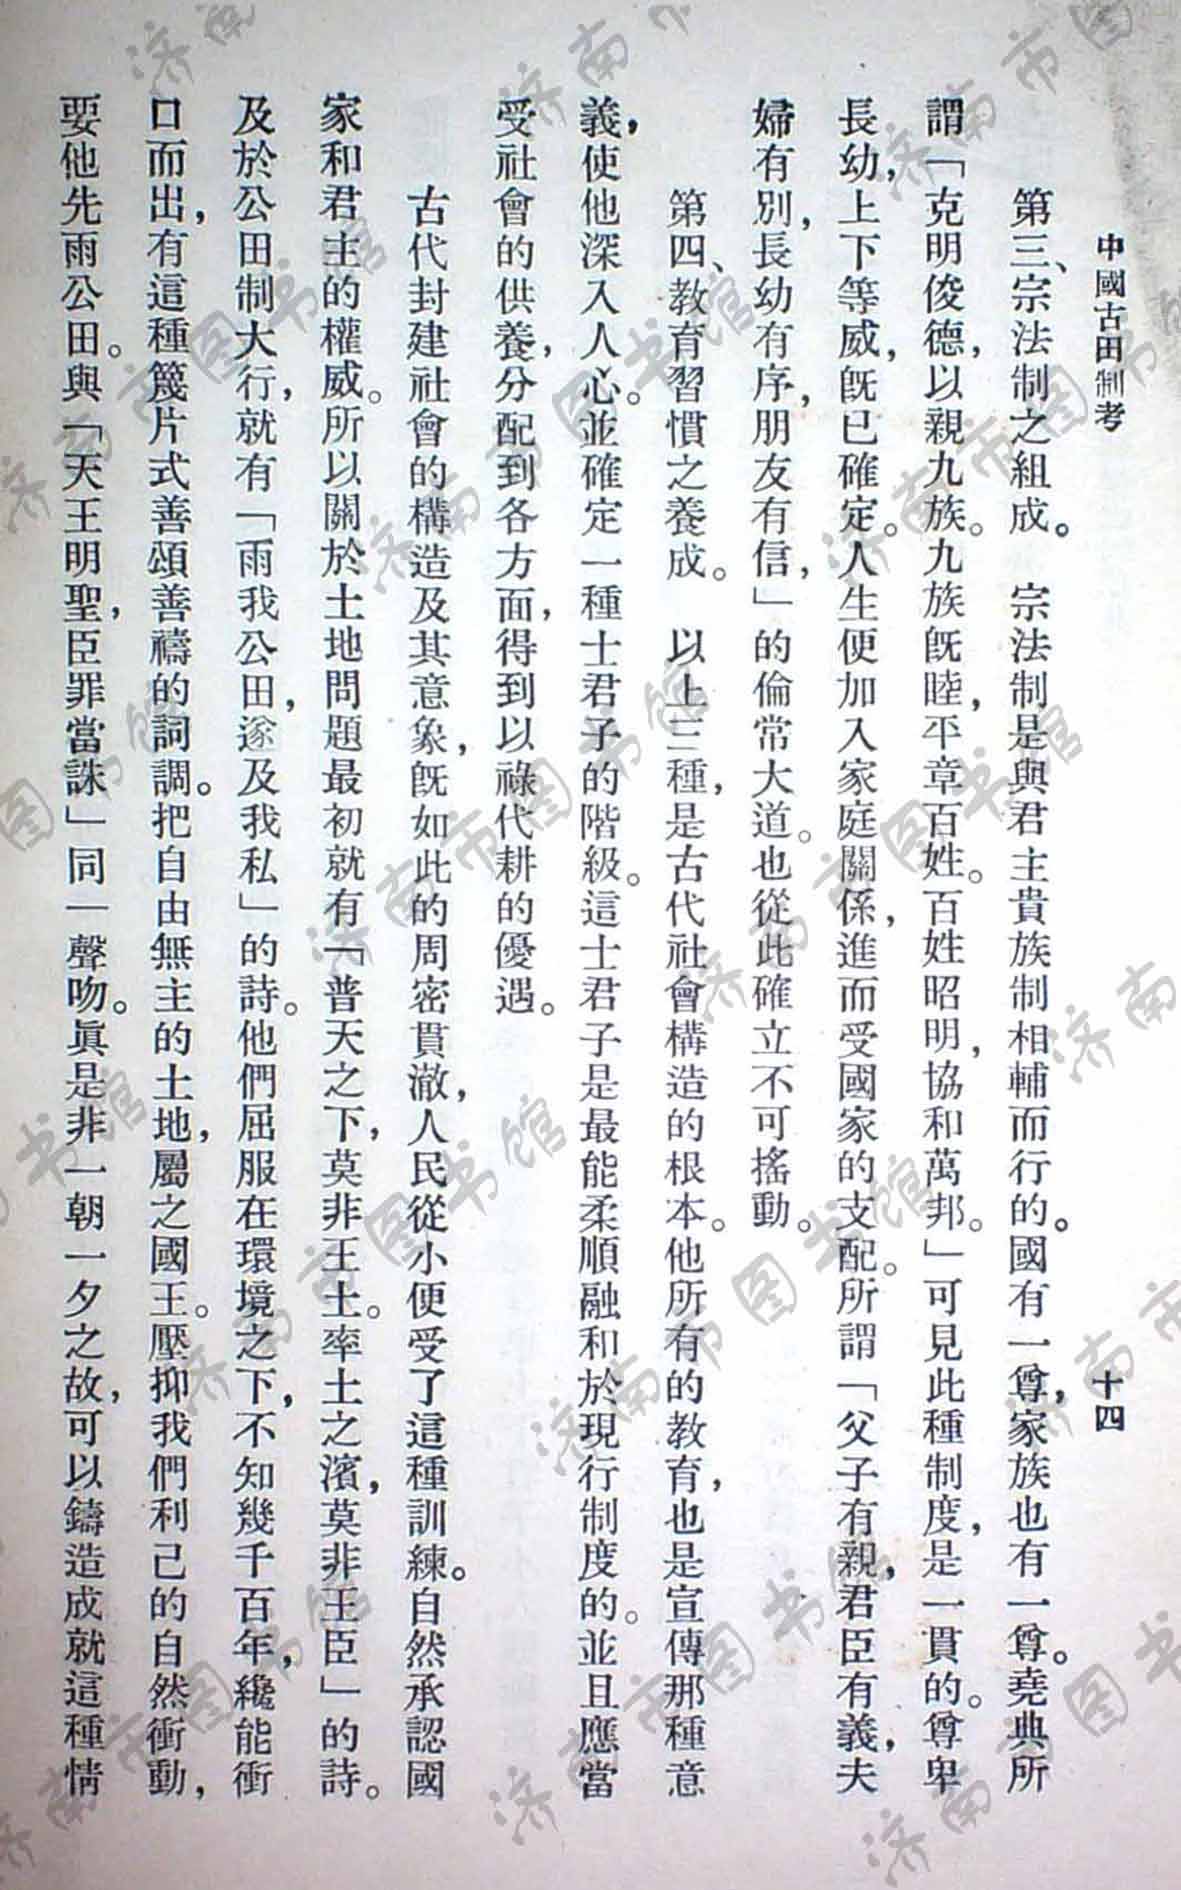 中國古田制考
十四
第三、宗法制之組成。　宗法制是與君主貴族制相輔而行的。國有一尊，家族也有一尊。堯典所
謂「克明俊德，以親九族。九族既睦，平章百姓。百姓昭明，協和萬邦。」可見此種制度，是一貫的。尊卑
長幼，上下等威，既已確定。人生便加入家庭關係，進而受國家的支配。所謂「父子有親，君臣有義，夫
婦有別，長幼有序，朋友有信，」的倫常大道。也從此確立不可搖動。
第四、教育習慣之養成。　以上三種，是古代社會構造的根本。他所有的教育，也是宣傳那種意
義，使他深入人心。並確定一種士君子的階級。這士君子是最能柔順融和於現行制度的。並且應當
受社會的供養，分配到各方面，得到以祿代耕的優遇。
古代封建社會的構造及其意象，既如此的周密貫澈，人民從小便受了這種訓練。自然承認國
家和君主的權威。所以關於土地問題最初就有「普天之下，莫非王土。率土之濱，莫非王臣」的詩。
及於公田制大行，就有「雨我公田，遂及我私」的詩。他們屈服在環境之下，不知幾千百年，纔能衝
口而出，有這種篾片式善頌善禱的詞調。把自由無主的土地，屬之國王。壓抑我們利己的自然衝動，
要他先雨公田。與「天王明聖，臣罪當誅」同一聲吻。眞是非一朝一夕之故，可以鑄造成就這種情
济南市图书馆